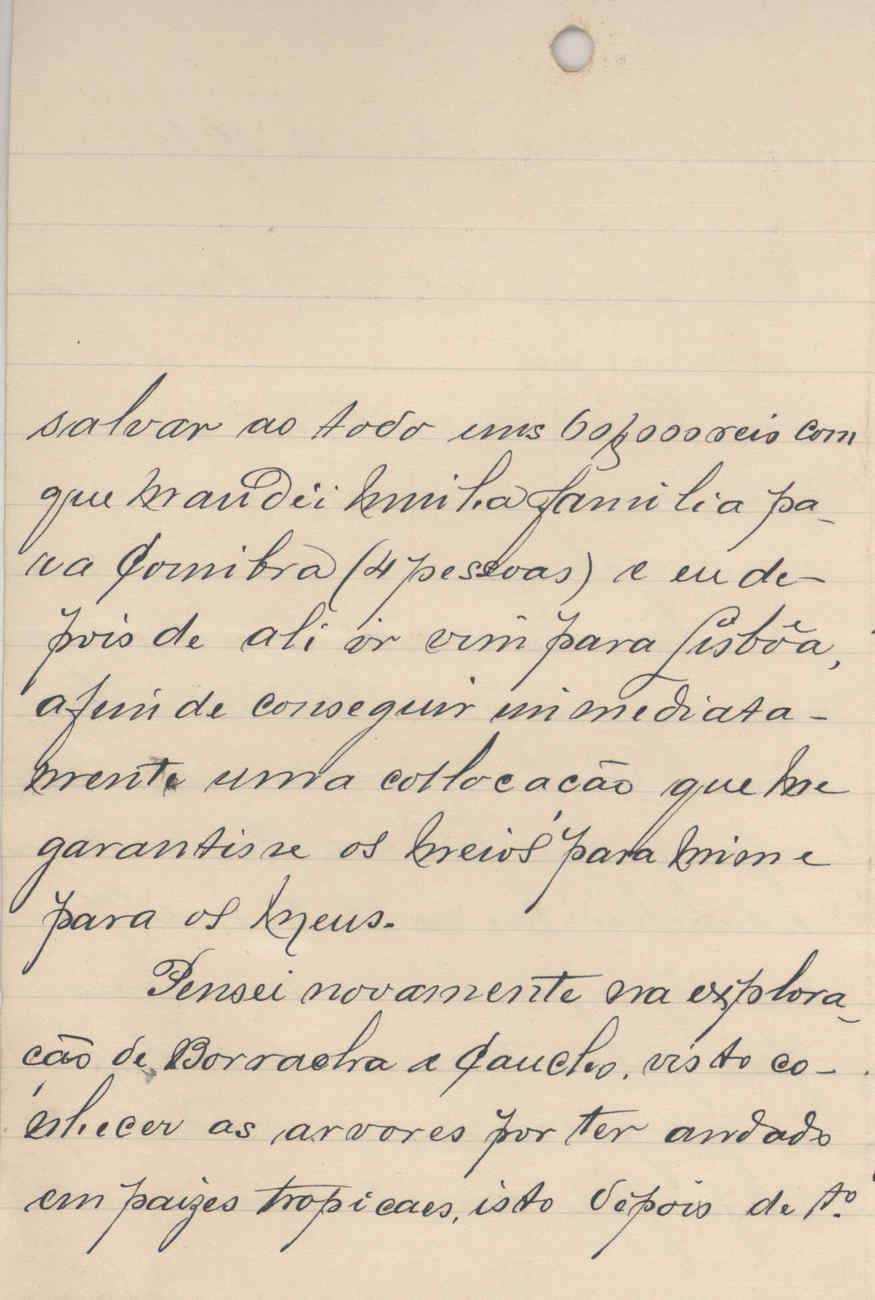 salvar ao todo uns 60$000 reis com
que mandei minha familia pa-
ra Coimbra (4 pessoas) e eu de-
pois de ali ir vim para Lisbôa,
afim de conseguir immediata-
mente uma collocação que me
garantisse os meios para mim e
para os meus.
Pensei novamente na explora-
ção de Borracha e Caucho, visto co-
nhecer as arvores por ter andado
em paizes tropicaes, isto depois de t.º